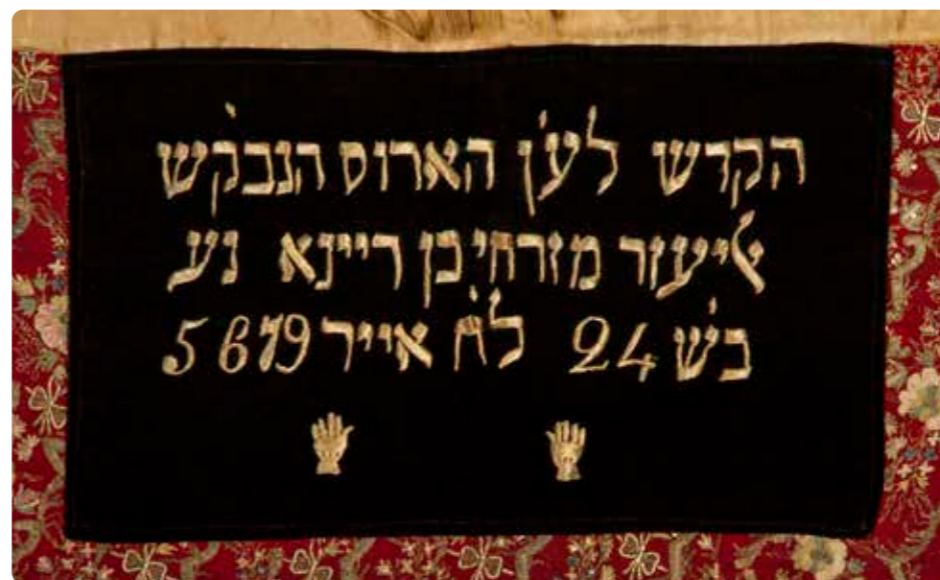 הקדש לע'ן הארוס הנבק'ש
ﭏיעזר מזרחי בן ריינא נע
בש' 24 לח' אייר 5679